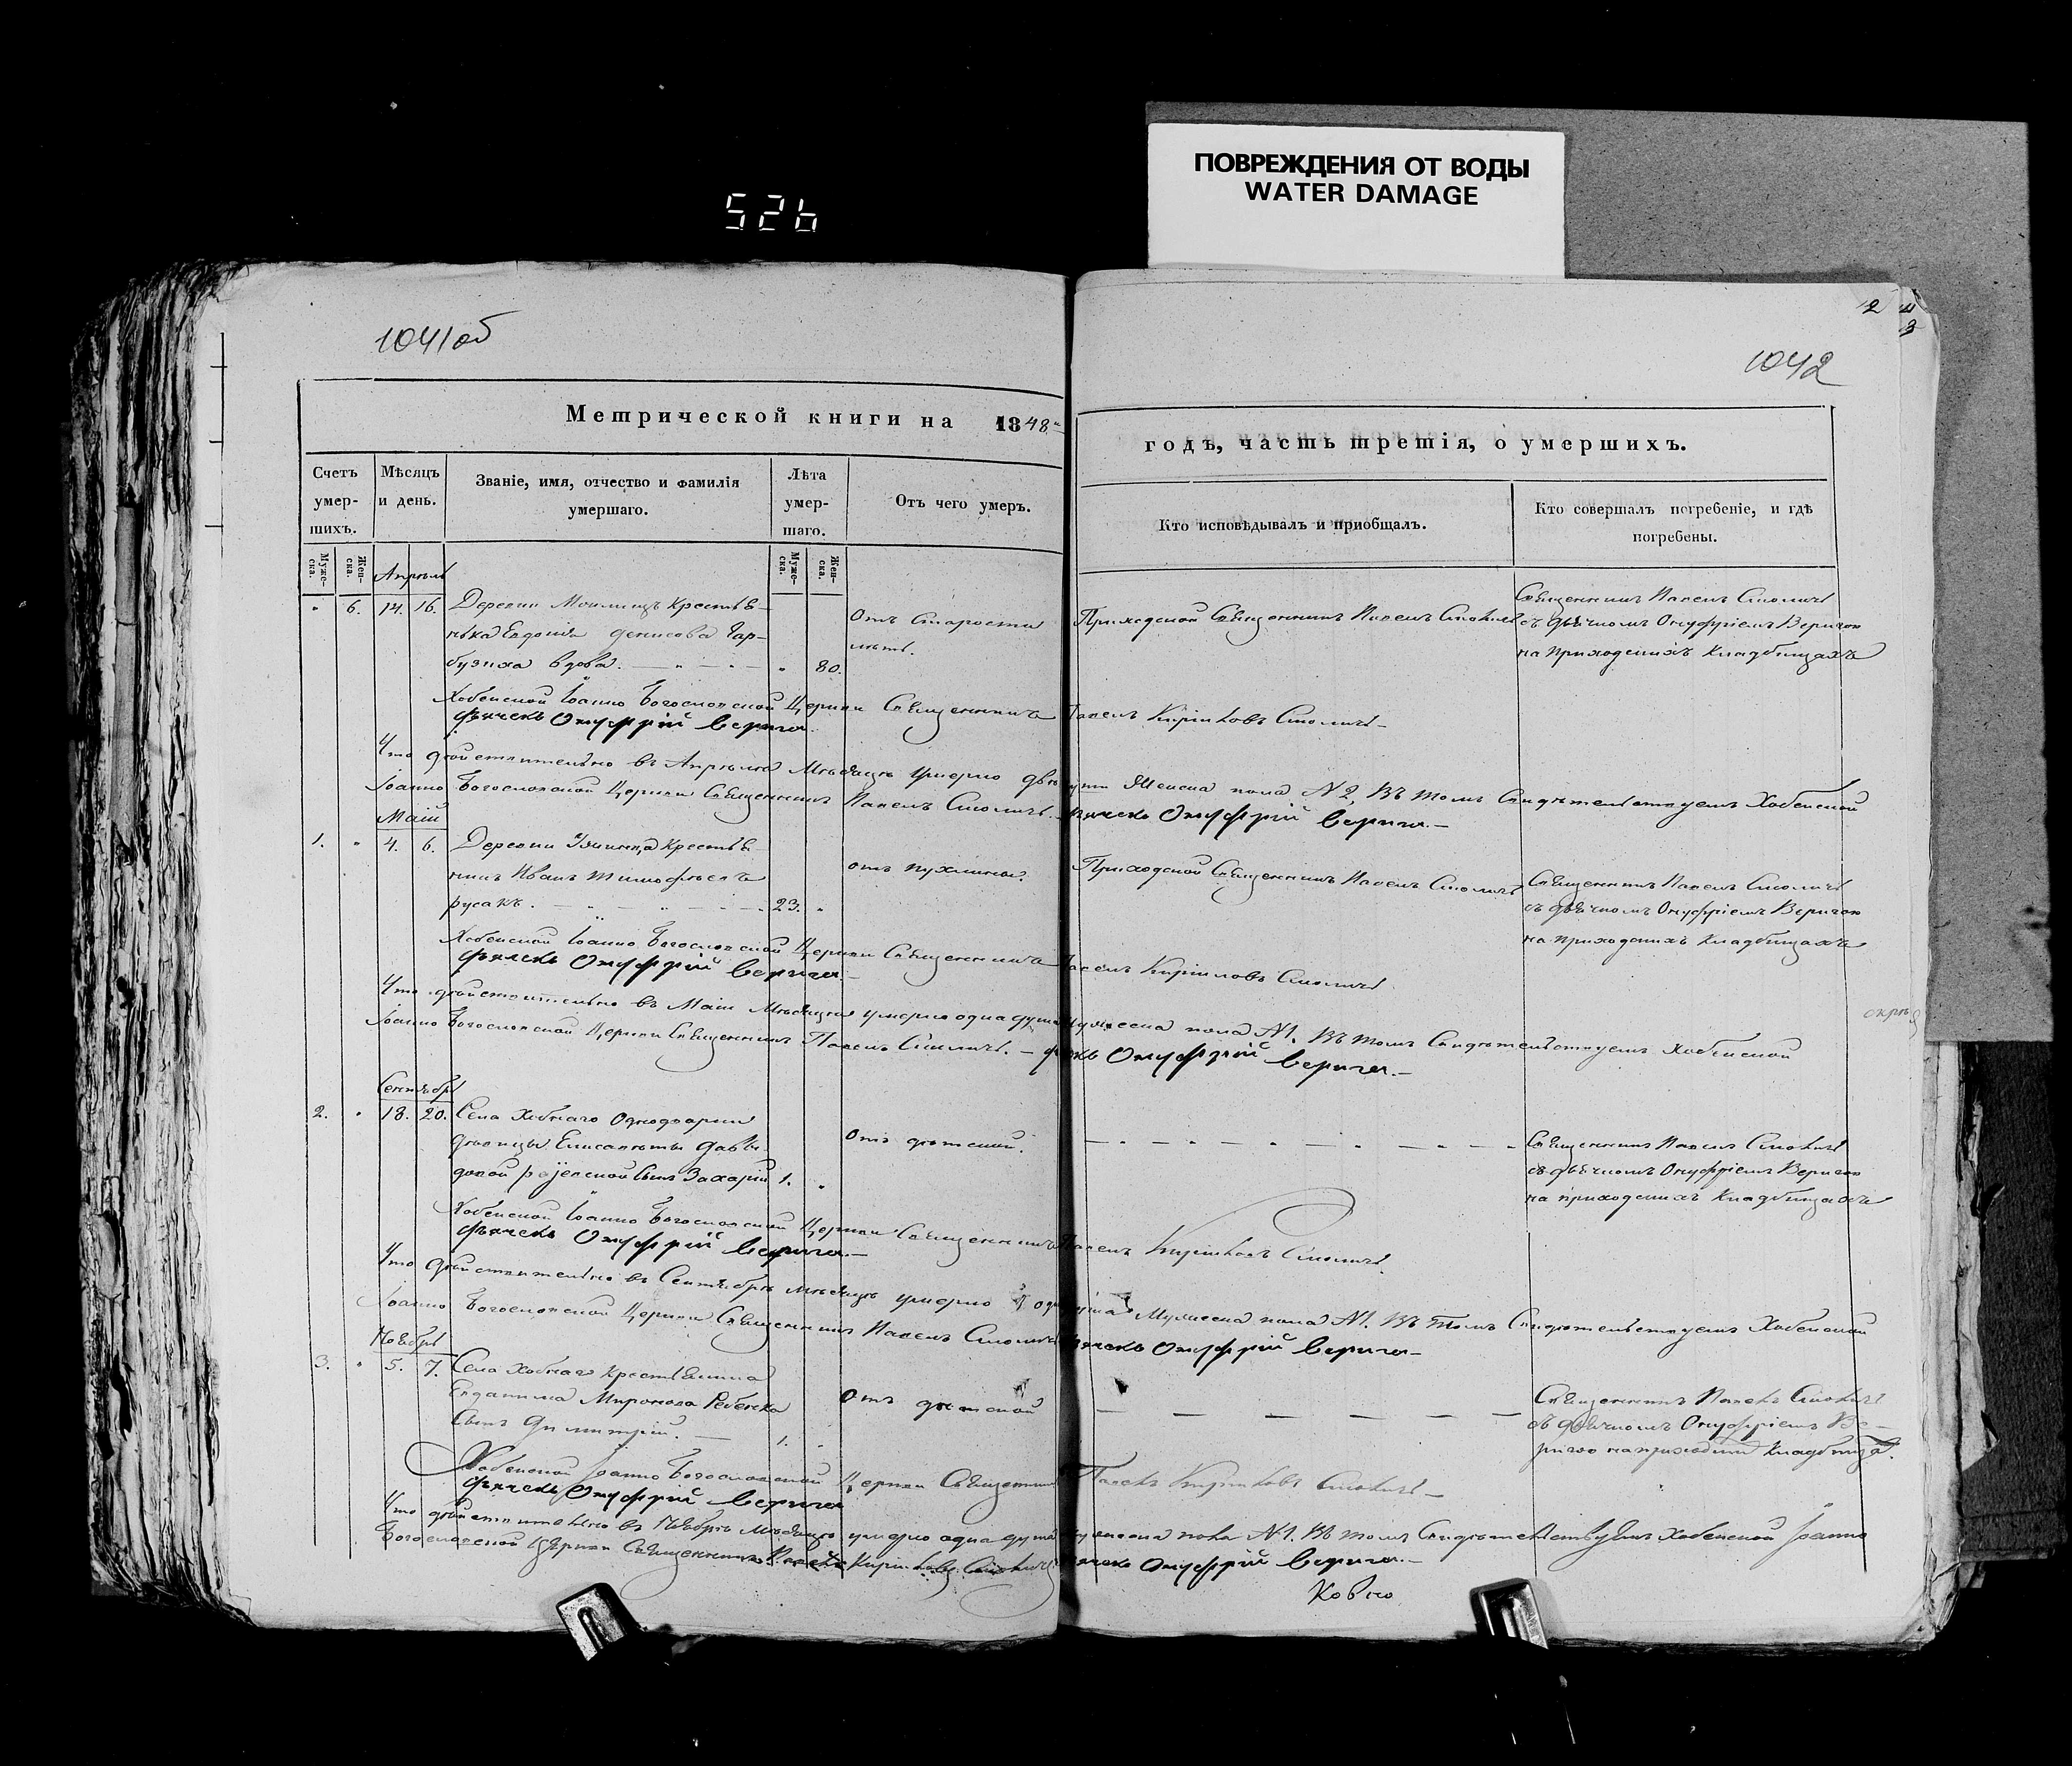 ПОВРЕЖДЕНИЯ ОТ ВОДЫ
WATER DAMAGE
526
1041об
1042
Метрической книги на 1848й
годъ, часть третія, о умершихъ.
Счетъ умер-
шихъ.
Мѣсяцъ
и день.
Званіе, имя, отчество и фамилія
умершаго.
Лѣта
умер-
шаго.
Отъ чего умеръ.
Кто исповѣдывалъ и приобщалъ.
Кто совершалъ погребеніе, и гдѣ
погребены.
Муже-
ска.
Жен-
ска.
Муже-
ска.
Жен-
ска.
Апрѣль
" 6. 14. 16. Деревни крестья-
нка Евдокія Денисова Гар-
бузиха вдова. " 80.
Отъ старости
лѣтъ.
Приходской Священникъ Павелъ Смоличъ
Священникъ Павелъ Смоличъ
съ дьячкомъ Онуфріемъ Веригою
на приходскихъ кладбищахъ
Хобенской Іоанно Богословской Церкви Священникъ Павелъ Кириловъ Смоличъ
дьячекъ Онуфрій Верига
Что дѣйствительно въ Апрѣлѣ мѣсяцѣ умерло двѣ женска пола №2, въ томъ свидѣтельствуемъ Хобенской
Іоанно Богословской Церкви Священникъ Павелъ Смоличъ. дьячекъ Онуфрій Верига.
Май
1. " 4. 6. Деревни крестья-
нинъ Иванъ Тимофеевъ
русакъ. 23. "
отъ пухлины.
Приходской Священникъ Павелъ Смоличъ
Священникъ Павелъ Смоличъ
съ дьячкомъ Онуфріемъ Веригою
на приходскихъ кладбищахъ
Хобенской Іоанно Богословской Церкви Священникъ Павелъ Кириловъ Смоличъ
дьячекъ Онуфрій Верига.
Что дѣйствительно въ Маи мѣсяцѣ умерла одна душа мужеска пола №1. въ томъ свидѣтельствуемъ Хобенской
Іоанно Богословской Церкви Священникъ Павелъ Смоличъ. дьячекъ Онуфрій Верига.
Сентябрь
2. " 18. 20. Села Хобнаго Однодворки
дѣвицы Елисаветы Давы-
довой сынъ Захарій 1. "
Отъ дѣтской.
Священникъ Павелъ Смоличъ
съ дьячкомъ Онуфріемъ Веригою
на приходскихъ кладбищахъ
Хобенской Іоанно Богословской Церкви Священникъ Павелъ Кириловъ Смоличъ.
дьячекъ Онуфрій Верига.
Что дѣйствительно въ Сентябрѣ мѣсяцѣ умерло мужеска пола №1. въ томъ свидѣтельствуемъ Хобенской
Іоанно Богословской Церкви Священникъ Павелъ Смоличъ дьячекъ Онуфрій Верига
Ноябрь
3. " 5. 7. Села Хобнаго крестьянина
Евдокима Миронова Ребенка
сынъ Димитрій. 1. "
Отъ дѣтской
Священникъ Павелъ Смоличъ
съ дьячкомъ Онуфріемъ Ве-
ригою
Хобенской Іоанно Богословской Церкви Священникъ Павелъ Кириловъ Смоличъ
дьячекъ Онуфрій Верига
Что дѣйствительно въ Ноябрѣ мѣсяцѣ умерло одна душа мужеска пола №1. въ томъ свидѣтельствуемъ Хобенской Іоанно
Богословской Церкви Священникъ Павелъ Кириловъ Смоличъ дьячекъ Онуфрій Верига.